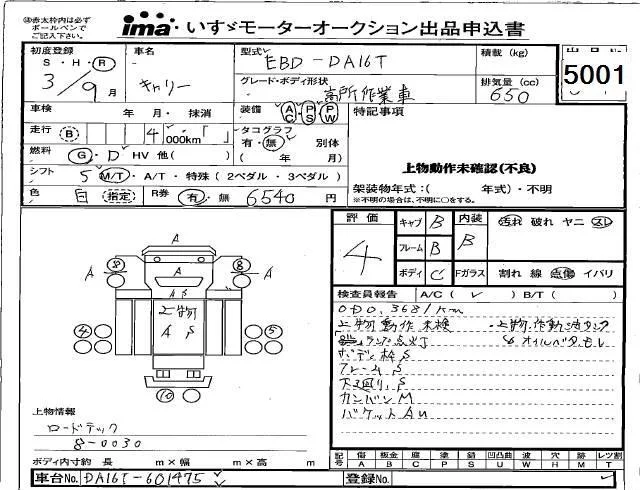 ㊟赤太枠内は必ず
ボールペンで
ご記入下さい。
ima いすゞモーターオークション出品申込書
初度登録 車名 型式 積載(kg) 出品No.
S・H・R - EBD-DA16T 5001
3/9月 キャリー グレード・ボディ形状 排気量(cc)
高所作業車 650
車検 年・月・ 抹消 装備 AC PS PW 特記事項
走行 B 4 000km タコグラフ
有・無 別体
燃料 G・D HV 他( ) ( 年 月) 上物動作未確認(不良)
シフト 5 M/T・A/T・特殊(2ペダル・3ペダル) 架装物年式:( 年式)・不明
※不明の場合は、不明に○をする。
色 白 指定 R券 有・無 6540円
評価 キャブ B 内装 汚れ 破れ ヤニ スレ
4 フレーム B B
ボディ C Fガラス 割れ 線 点傷 イバリ
A
A 8 8 A
A S
上物
A S
4 5
10
検査員報告 A/C( ✓ ) B/T( )
ODO.3681km
上物動作未検 ・上物作動油タンク
ランプ点灯 オイルバタモレ
ボデー枠S
フレームS
下廻り.S
カンバンM
バケットAU
上物情報
ロードテック
8-0030
ボディ内寸約 長 m×幅 m×高 m
記号 傷A 板金B 腐C 塗P 錆S 凹凸曲U 波W 穴H 跡M レツ割T
車台No. DA16T-601475 登録No.